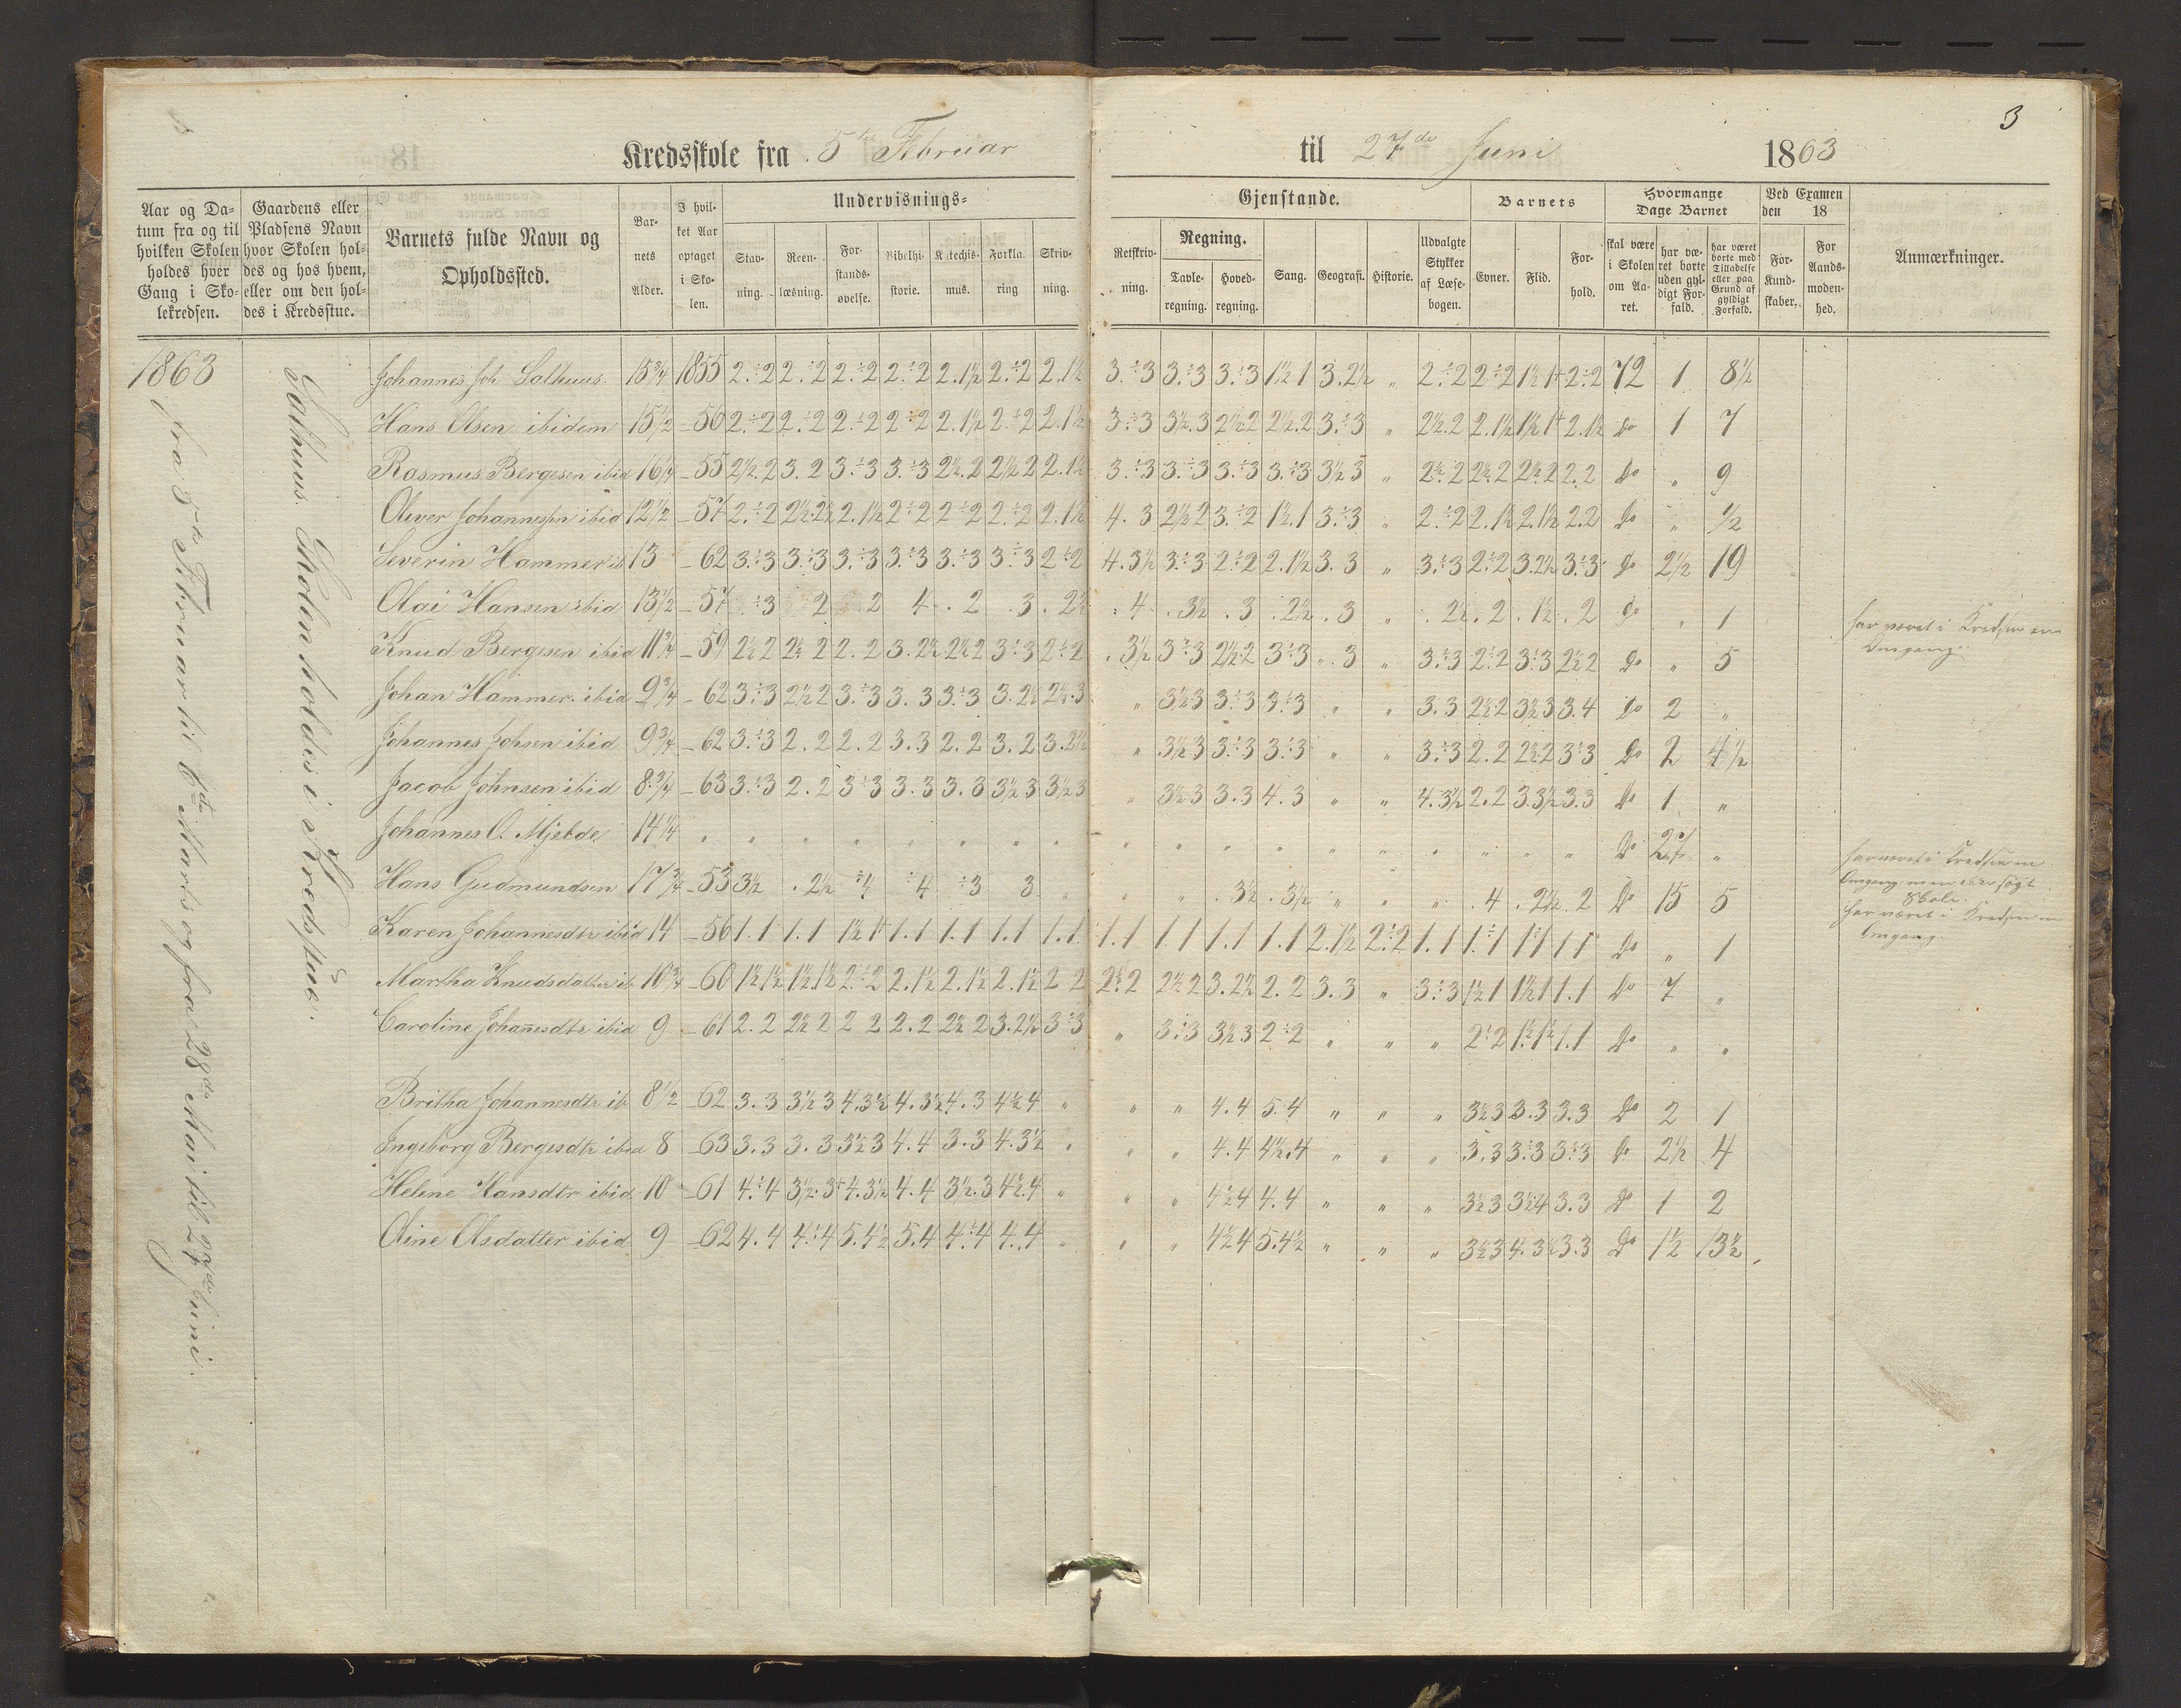 3
Kredsskole fra 5te Februar til 27de Juni 1863
Aar og Datum fra og til hvilken Skolen holdes hver Gang i Skolekredsen.
Gaardens eller Pladsens Navn hvor Skolen holdes og hos hvem, eller om den holdes i Kredsstue.
Barnets fulde Navn og Opholdssted.
Barnets Alder.
I hvilket Aar optaget i Skolen.
Undervisnings-
Stavning. Reenlæsning. Forstandsøvelse. Bibelhistorie. Katechismus. Forklaring Skrivning.
Gjenstande.
Retskrivning. Regning. Tavleregning. Hovedregning. Sang. Geografi. Historie. Udvalgte Stykker af Læsebogen.
Barnets
Evner. Flid. Forhold.
Hvormange Dage Barnet
skal være i Skolen om Aaret. har været borte uden gyldigt Forfald. har været borte med Tilladelse eller paa Grund af gyldigt Forfald.
Ved Examen den 18
For Kundskaber. For Aandsmodenhed.
Anmærkninger.
1863
fra 5te Februar til 6te Marts og fra 28de Mai til 27de Juni.
Salhuus. Skolen holdes i Kredsstue.
Johannes Joh. Salhuus. 15¾ 1855 2.÷2 2.÷2 2.÷2 2.÷2 2.1½ 2.÷2 2.1½ 3.÷3 3.÷3 3.÷3 1½ 1 3.2½ „ 2.÷2 2÷2 1½ 1+ 2÷2 72 1 8½
Hans Olsen ibidem 15½ -56 2.÷2 2.÷2 2.÷2 2÷2 2.1½ 2.÷2 2.1½ 3÷3 3½.3 2½.2 2½.2 3.÷3 „ 2½.2 2.1½ 1½ 1+ 2.1½ Do 1 7
Rasmus Bergesen ibid 16¼ -55 2½.2 3.2 3.÷3 3.÷3 2½.2 2½ 2 2.1½ 3.÷3 3.÷3 3.÷3 3.÷3 3½ 3 „ 2½.2 2½.2 2½.2 2.2 Do „ 9
Oliver Johannessn ibid 12½ -57 2.÷2 2½.2½ 2.1½ 2÷2 2÷2 2.÷2 2.1½ 4.3 2½ 2 3.÷2 1½.1 3.÷3 „ 2.÷2 2.1½ 2.1½ 2.2 Do „ ½
Severin Hammer ib 13 -62 3.÷3 3.÷3 3.÷3 3.÷3 3.÷3 3÷3 2÷2 4.3½ 3.÷3 2÷2 2.1½ 3.3 „ 3.÷3 2÷2 3.2½ 3÷3 Do 2½ 19
Olai Hansen ibid 13½ -57 ÷3 2 2 4 .2 .3 .2½ .4 .3½ .3 .2½ .3 „ .2½ .2 .1½ .2 Do „ 1 har været i Kredsen en Omgang.
Knud Bergesen ibid 11¾ -59 2½ 2 2½ 2 2.2 3.2½ 2½ 2 3÷3 2÷2 .3½ 3÷3 2½.2 3÷3 „.3 „ 3.÷3 2÷2 3÷3 2½ 2 Do „ 5
Johan Hammer. ibid 9¾ -62 3÷3 2½ 2 3.÷3 3.3 3÷3 3.2½ 2½.3 „ 3½.3 3÷3 3÷3 „ „ 3.3 2½ 2 3½ 3 3.4 Do 2 „
Johannes Johsen ibid 9¾ -62 3.÷3 2.2 2.2 3.3 2.2 3.2 3.2½ „ 3½ 3 3÷3 3÷3 „ „ 3.÷3 2.2 2½ 2 3÷3 Do 2 4½
Jacob Johnsen ibid 8¾ -63 3.÷3 2.2 3÷3 3.3 3.3 3½ 3 3½ 3 „ 3½ 3 3.3 4.3 „ „ 4.3½ 2.2 3.3½ 3.3 Do 1 „
Johannes O. Mjelde. 14¼ „ „ „ „ „ „ „ „ „ „ „ „ „ „ „ „ „ „ Do 27 „ har været i Kredsen en Omgang, men søgt Skole.
Hans Gudmundsen 17¾ -53 3½ .2½ ÷4 ÷4 ÷3 3 „ „ „ .3½ .3½ „ „ „ .4 .2½ .2 Do 15 5 har været i Kredsen en Omgang.
Karen Johannesdtr ibid 14 -56 1.1 1.1 1½ 1+ 1.1 1.1 1.1 1.1 1.1 1.1 1.1 1.1 2.1½ 2÷2 1.1 1÷1 1÷1 1 1 Do „ 1
Martha Knudsdatter ib 10¾ -60 1½ 1½ 1½.1½ 2÷2 2.1½ 2.1½ 2.1½ 2 2 2½ 2 2½ 2 3.2½ 2.2 3.3 „ 3÷3 1½ 1 1½ 1 1.1 Do 7 „
Caroline Johanesdtr ibid 9 -61 2.2 2½ 2 2 2 2.2 2½ 2 3.2½ 3÷3 „ 3÷3 3½ 3 2÷2 „ „ „ 2÷2 1½ 1½ 1.1 Do „ „
Britha Johannesdtr ib 8½ -62 3.3 3½ 3 4.3½ 4.3½ 4.3 4½ 4 „ „ „ 4.4 5.4 „ „ „ 3½ 3 3.3 3.3 Do 2 1
Ingeborg Bergesdtr ibid 8 -63 3.3 3.3 3½ 3 4.4 3.3 4.3½ „ „ „ 4.4 4½.4 „ „ „ 3.3 3÷3 3÷3 Do 2½ 4
Helene Hansdtr ibid 10 -61 4.÷4 3½.3+ 4.3½ 4.4 3½.3 4½.4 „ „ „ 4½ 4 4.4 „ „ „ 3½ 3 3½ 4 3.3 Do 1 2
Oline Olsdatter ibid 9 -62 4.4 4.÷4 5.4½ 5.4 4÷4 4.4 „ „ „ 4½ 4 5.4½ „ „ „ 3½ 3 4.3½ 3.3 Do 1½ 13½